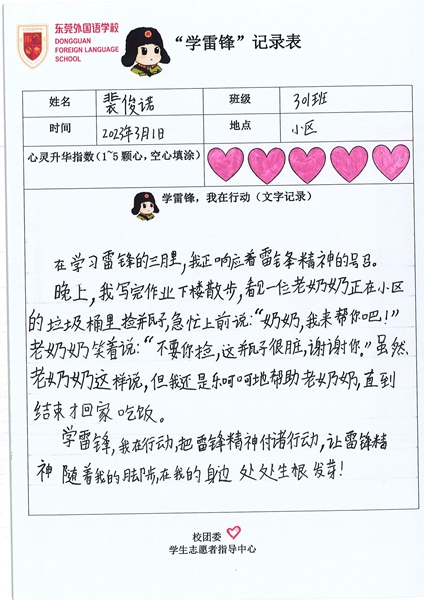 东莞外国语学校
DONGGUAN
FOREIGN LANGUAGE
SCHOOL
“学雷锋”记录表
姓名 裴俊诺 班级 301班
时间 2023年3月1日 地点 小区
心灵升华指数(1~5颗心,空心填涂)
学雷锋,我在行动(文字记录)
在学习雷锋的三月里,我正响应着雷锋精神的号召。
晚上,我写完作业下楼散步,看见一位老奶奶正在小区
的垃圾桶里捡瓶子,急忙上前说:“奶奶,我来帮你吧!”
老奶奶笑着说:“不要你捡,这瓶子很脏,谢谢你。”虽然
老奶奶这样说,但我还是乐呵呵地帮助老奶奶,直到
结束才回家吃饭。
学雷锋,我在行动,把雷锋精神付诸行动,让雷锋精
神随着我的脚步,在我的身边处处生根发芽!
校团委
学生志愿者指导中心